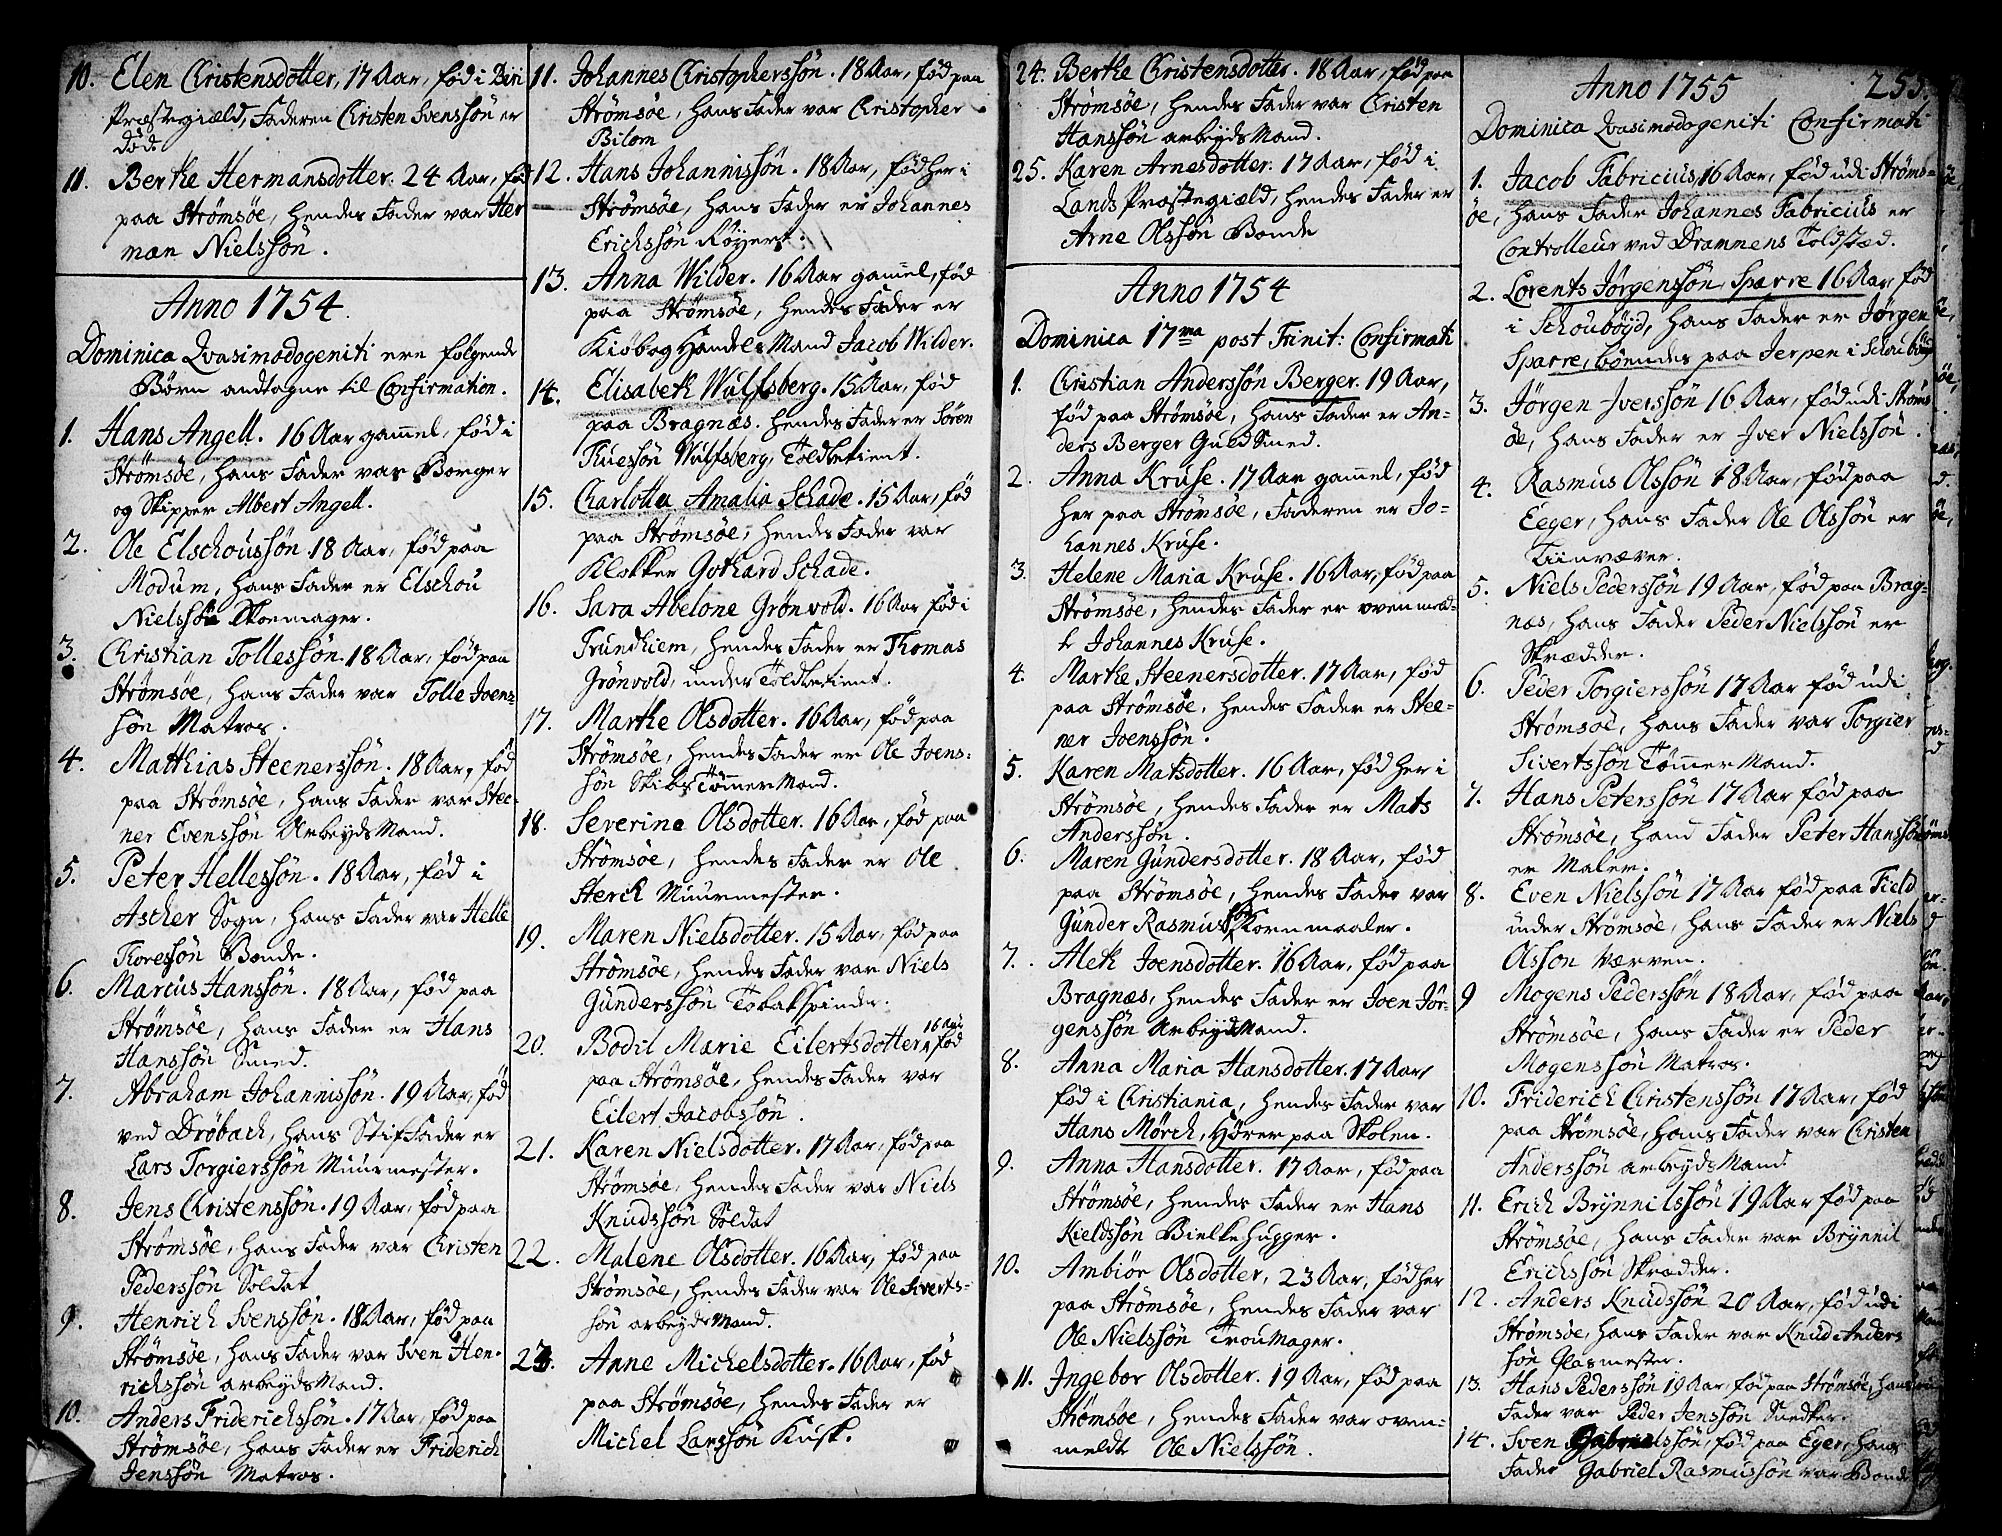 10. Elen Christensdotter, 17 Aar, fød i Biri
Præstegiæld, Faderen Christen Svenssøn er
død
11. Berthe Hermansdotter. 24 Aar, fød
paa Strømsøe, hendes Fader var Her
man Nielssøn.
Anno 1754.
Dominica Qvasimodogeniti ere følgende
Børn andtagne til Confirmation.
1. Hans Angell. 16 Aar gam̃el, fød i
Strømsøe, hans Fader var Borger
og Skipper Albert Angell.
2. Ole Elschoussøn 18 Aar, fød paa
Modum, hans Fader er Elschou
Nielssøn Skoemager.
3. Christian Tollessøn. 18 Aar, fød paa
Strømsøe, hans Fader var Tolle Joens
søn Matros.
4. Matthias Steenerssøn. 18 Aar, fød
paa Strømsøe, hans Fader var Stee-
ner Evenssøn Arbeyds Mand.
5. Peter Hellessøn. 18 Aar, fød i
Ascher Sogn, hans Fader var Helle
Thoressøn Bonde.
6. Marcus Hanssøn. 18 Aar, fød paa
Strømsøe, hans Fader er Hans
Hanssøn Smed.
7. Abraham Johannissøn. 19 Aar, fød
ved Drøbach, hans Stiffader er
Lars Torgierssøn Muurmester.
8. Jens Christenssøn. 19 Aar, fød paa
Strømsøe, hans Fader var Christen
Pederssøn Soldat
9. Henrich Svenssøn. 18 Aar, fød paa
Strømsøe, hans Fader var Sven Hen-
richssøn arbeyds Mand.
10. Anders Friderichssøn. 17 Aar, fød paa
Strømsøe, hans Fader er Friderich
Jenssøn Matros.
11. Johannes Christopherssøn. 18 Aar, fød paa
Strømsøe, hans Fader var Christopher
Bilom
12. Hans Johannissøn. 18 Aar, fød her i
Strømsøe, hans Fader er Johannes
Erichssøn Røyert.
13. Anna Wilder. 16 Aar gam̃el, fød
paa Strømsøe, hendes Fader er
Kiøb og Handels Mand Jacob Wilder.
14. Elisabeth Wulfsberg. 15 Aar, fød
paa Bragnæs. hendes Fader er Søren
Thuessøn Wulfsberg, Toldbetient.
15. Charlotta Amalia Schade. 15 Aar, fød
paa Strømsøe, hendes Fader var
Klokker Gothard Schade.
16. Sara Abelone Grønvold. 16 Aar fød i
Trundhiem, hendes Fader er Thomas
Grønvold, under Toldbetient.
17. Marthe Olsdotter. 16 Aar, fød paa
Strømsøe, hendes Fader er Ole Joens-
søn Skibs Tøm̃er Mand.
18. Severine Olsdotter. 16 Aar, fød paa
Strømsøe, hendes Fader er Ole
Sterck Muurmester.
19. Maren Nielsdotter. 15 Aar, fød paa
Strømsøe, hendes Fader var Niels
Gunderssøn Tobakspinder.
20. Bodil Marie Eilertsdotter, 16 Aar fød
paa Strømsøe, hendes Fader var
Eilert Jacobssøn.
21. Karen Nielsdotter. 17 Aar, fød paa
Strømsøe, hendes Fader var Niels
Knudssøn Soldat
22. Malene Olsdotter. 16 Aar, fød paa
Strømsøe, hendes Fader var Ole Siverts-
søn arbeyds Mand.
23. Anne Michelsdotter. 16 Aar, fød
paa Strømsøe, hendes Fader er
Michel Larssøn Kusk.
24. Berthe Christensdotter. 18 Aar, fød paa
Strømsøe, hendes Fader var Christen
Hanssøn arbeyds Mand.
25. Karen Arnesdotter. 17 Aar, fød i
Lands Præstegiæld, hendes Fader er
Arne Olssøn Bonde
Anno 1754
Dominica 17ma post Trinit: Confirmati
1. Christian Anderssøn Berger. 19 Aar,
fød paa Strømsøe, hans Fader er An-
ders Berger Guldsmed.
2. Anna Kruse. 17 Aar gam̃el, fød
her paa Strømsøe, Faderen er Jo-
hannes Kruse.
3. Helene Maria Kruse. 16 Aar, fød paa
Strømsøe, hendes Fader er ovenmæld-
te Johannes Kruse.
4. Marthe Steenersdotter. 17 Aar, fød
paa Strømsøe, hendes Fader er Stee-
ner Joenssøn.
5. Karen Matsdotter. 16 Aar, fød her i
Strømsøe, hendes Fader er Mats
Anderssøn.
6. Maren Gundersdotter. 18 Aar, fød
paa Strømsøe, hendes Fader var
Gunder Rasmussøn Kornmaaler.
7. Aleth Joensdotter. 16 Aar, fød paa
Bragnæs, hendes Fader er Joen Jør-
genssøn Arbeyds Mand.
8. Anna Maria Hansdotter. 17 Aar
fød i Christiania, hendes Fader var
Hans Mørch, Hører paa Skolen.
9. Anna Hansdotter. 17 Aar, fød paa
Strømsøe, hendes Fader er Hans
Kieldssøn Bielkehugger.
10. Ambiør Olsdotter, 23 Aar, fød her
paa Strømsøe, hendes Fader var
Ole Nielssøn Trou Mager.
11. Ingebor Olsdotter. 19 Aar, fød paa
Strømsøe, hendes Fader var oven-
meldt Ole Nielssøn.
Anno 1755 255.
Dominica Qvasimodogeniti Confirmati
1. Jacob Fabricius, 16 Aar, fød udi Strøms-
øe, hans Fader Johannes Fabricius er
Controlleur ved Drammens Toldstæd.
2. Lorents Jørgenssøn Sparre 16 Aar, fød
i Schoubøyd, hans Fader er Jørgen
Sparre, boendes paa Jerpen i Schoubøyd
3. Jørgen Iverssøn 16 Aar, fød udi Strøms
øe, hans Fader er Iver Nielssøn.
4. Rasmus Olssøn 18 Aar, fød paa
Eeger, hans Fader Ole Olssøn er
Tiinvæver.
5. Niels Pederssøn 19 Aar, fød paa Brag-
næs, hans Fader Peder Nielssøn er
Skrædder.
6. Peder Torgierssøn 17 Aar fød udi
Strømsøe, hans Fader var Torgier
Sivertssøn Tøm̃er Mand.
7. Hans Peterssøn 17 Aar fød paa
Strømsøe, hans Fader Peter Hanssøn
er Maler.
8. Even Nielssøn 17 Aar fød paa Field
under Strømsøe, hans Fader er Niels
Olsson Værven.
9 Mogens Pederssøn 18 Aar, fød paa
Strømsøe, hans Fader er Peder
Mogenssøn Matros.
10. Friderich Christenssøn 17 Aar, fød
paa Strømsøe, hans Fader var Christen
Anderssøn arbeyds Mand
11. Erich Brynnilssøn 19 Aar fød paa
Strømsøe, hans Fader var Brynnil
Erichssøn Skrædder.
12. Anders Knudssøn 20 Aar, fød udi
Strømsøe, hans Fader var Knud Anders
søn Glasmester.
13. Hans Pederssøn 19 Aar, fød paa Strømsøe, hans
Fader var Peder Jenssøn Snedker.
14. Sven Gabrielssøn, fød paa Eger, hans
Fader Gabriel Rasmussøn var Bonde